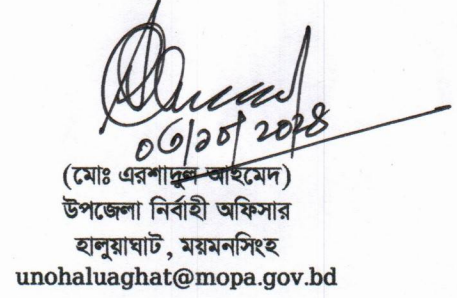 ০৩/১০/২০২৪
(মোঃ এরশাদুল আহমেদ)
উপজেলা নির্বাহী অফিসার
হালুয়াঘাট, ময়মনসিংহ
unohaluaghat@mopa.gov.bd